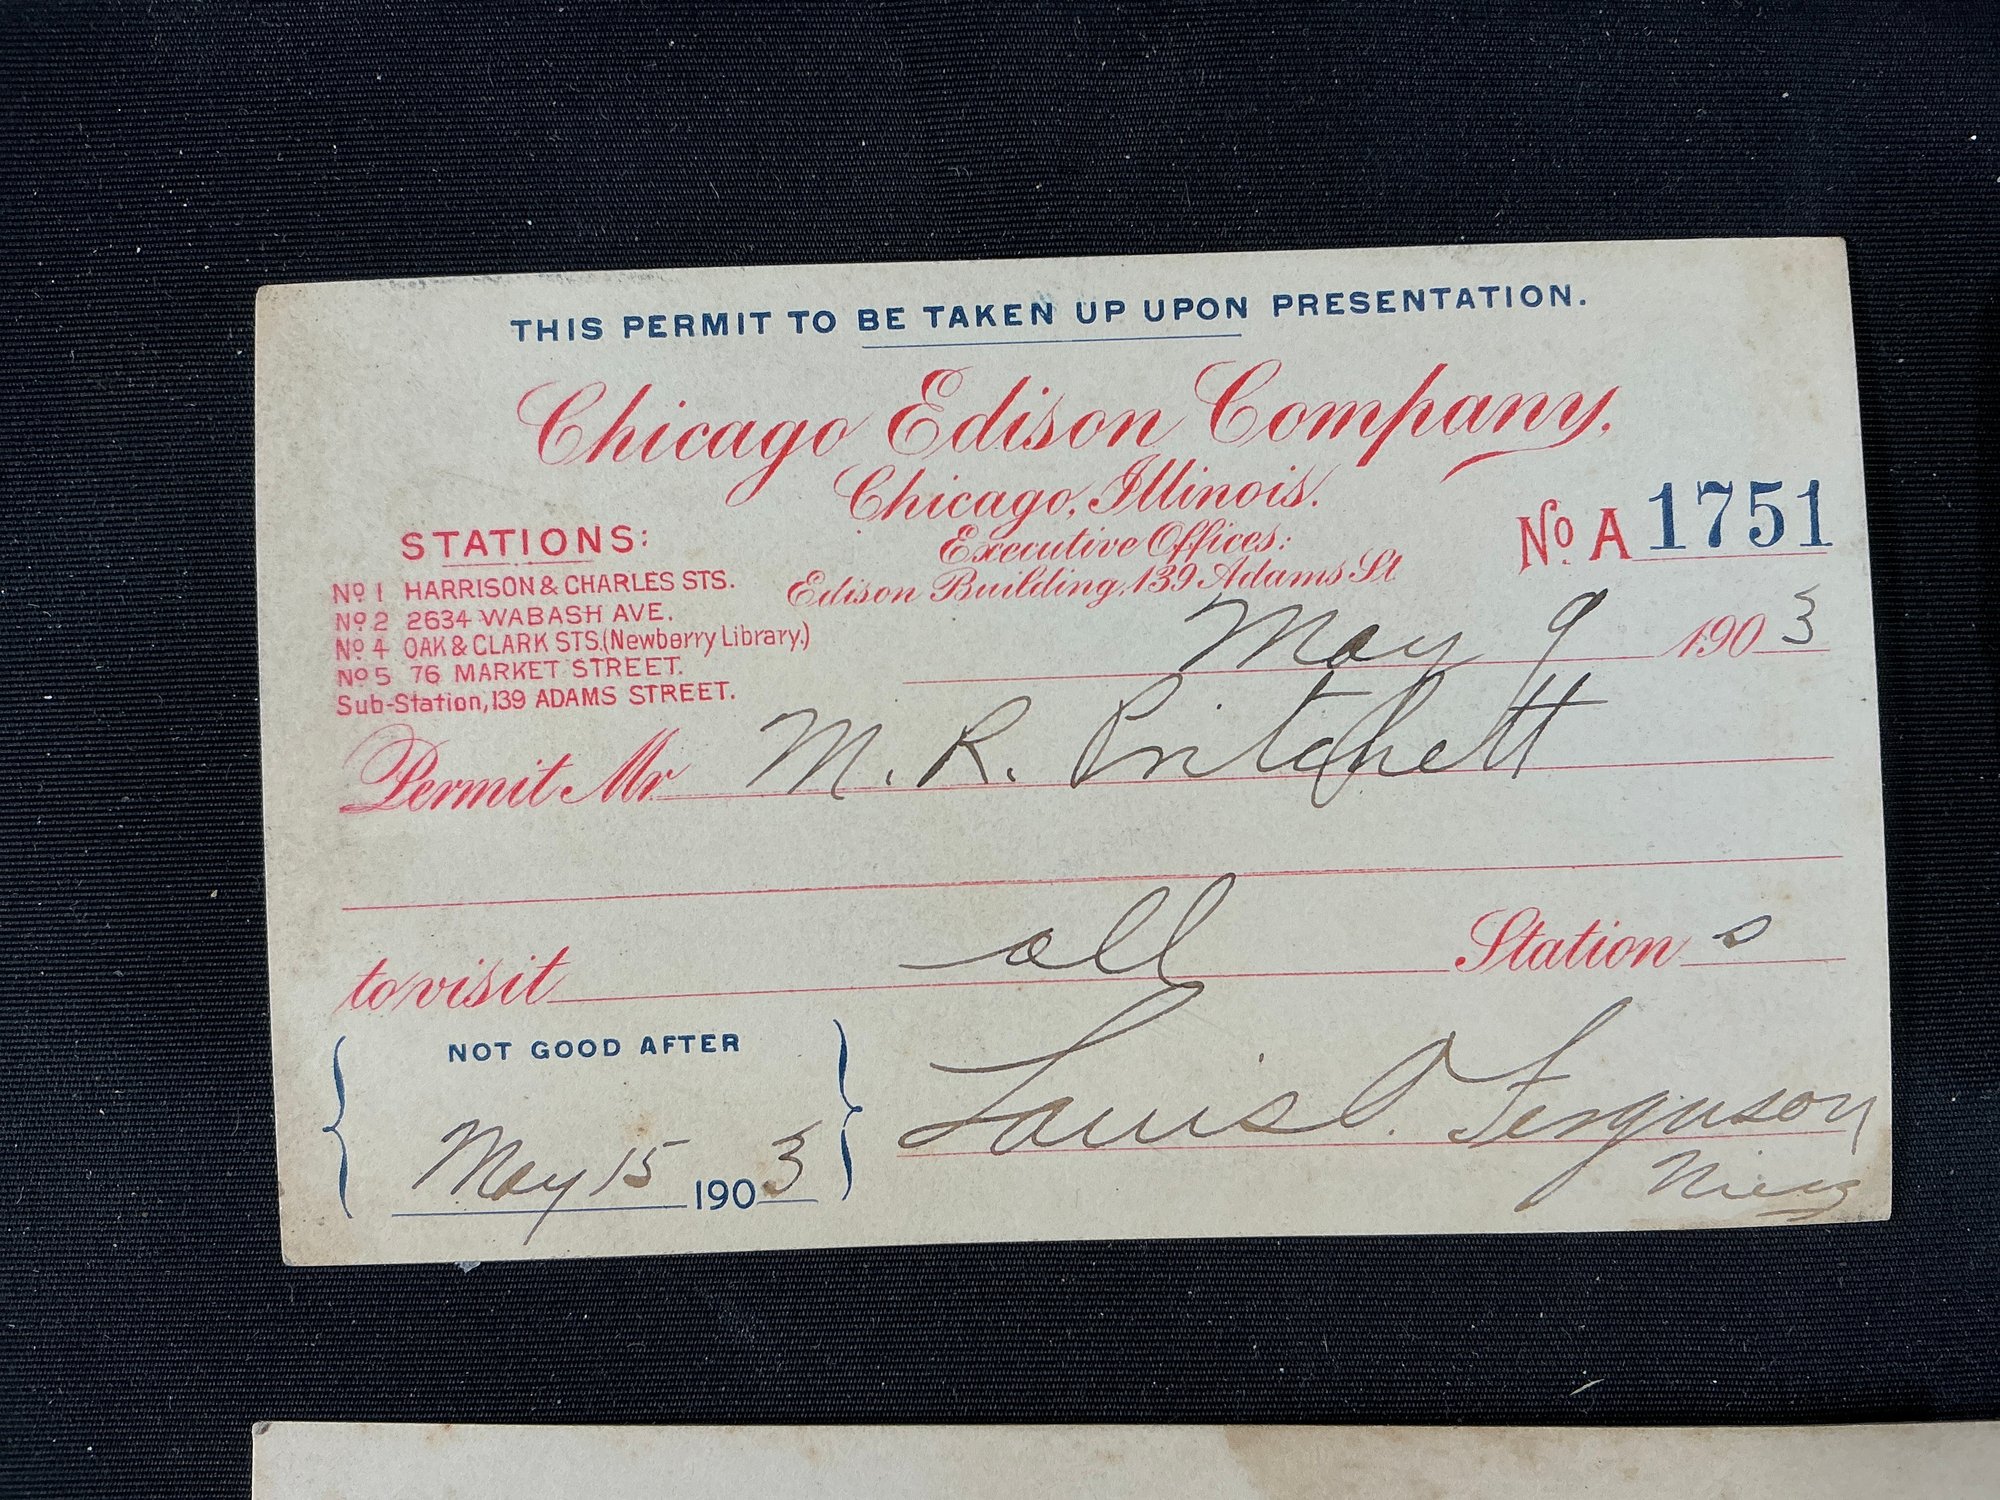 THIS PERMIT TO BE TAKEN UP UPON PRESENTATION.
Chicago Edison Company,
Chicago, Illinois.
Executive Offices:
Edison Building, 139 Adams St
No. A 1751
STATIONS:
No 1 HARRISON & CHARLES STS.
No 2 2634 WABASH AVE.
No 4 OAK & CLARK STS. (Newberry Library.)
No 5 76 MARKET STREET.
Sub-Station, 139 ADAMS STREET.
May 9 1903
Permit Mr M. R. Pritchett
to visit all Stations
NOT GOOD AFTER
May 15 1903
Louis A. Ferguson